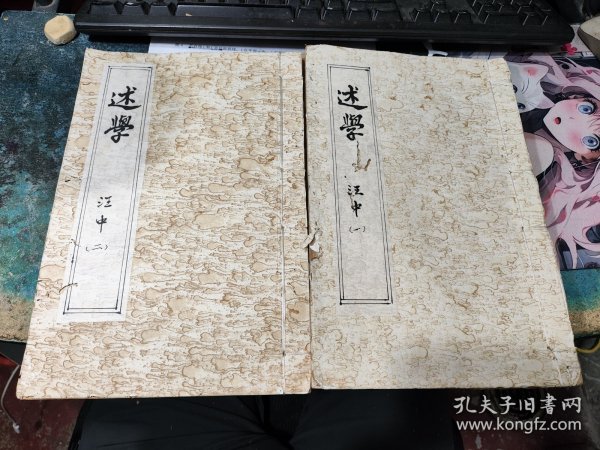 述學
汪中
（二）
述學
汪中
（一）
孔夫子旧书网
www.kongfz.com